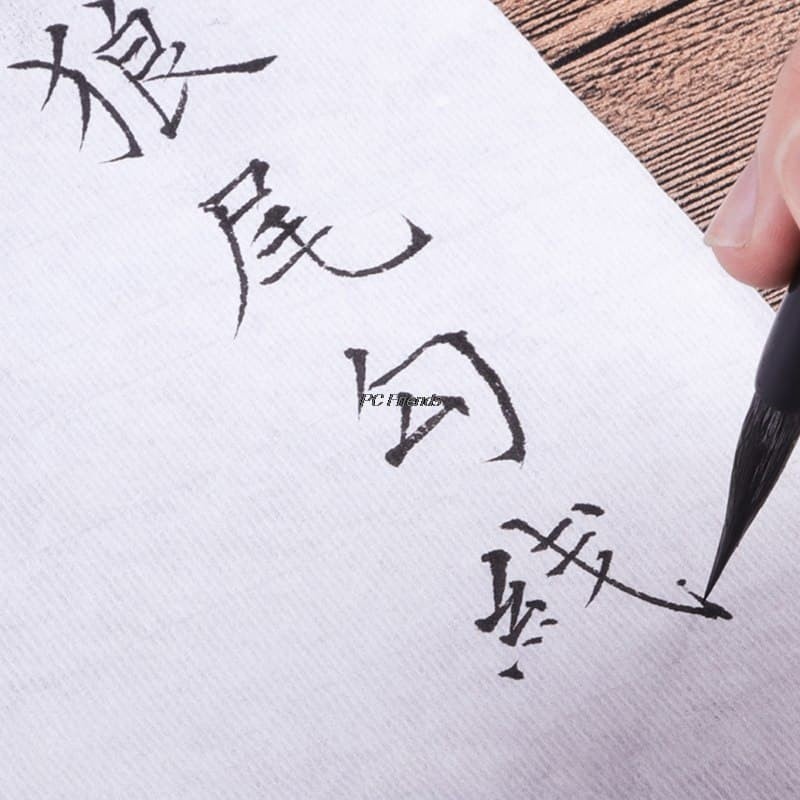 狼尾勾线
PC Friends